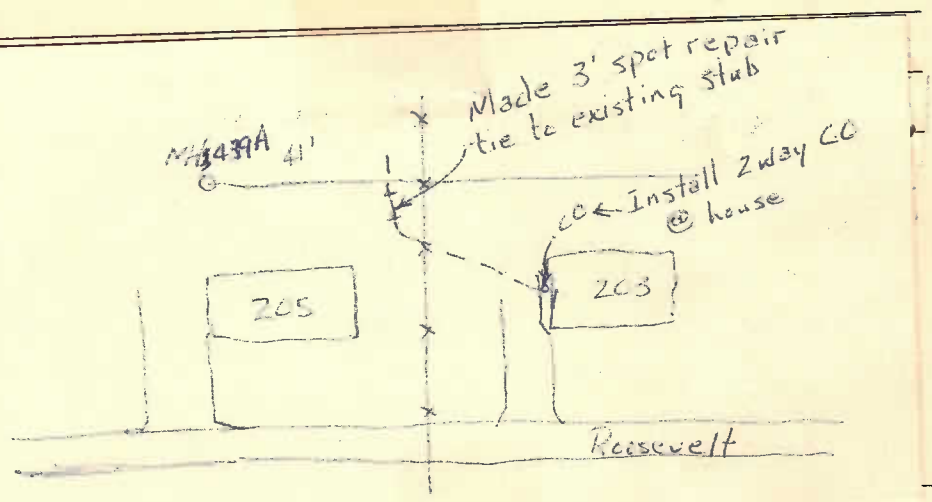 Made 3' spot repair
tie to existing stub
MH3439A 41'
CO ← Install 2way CO
@ house
205
203
Roosevelt